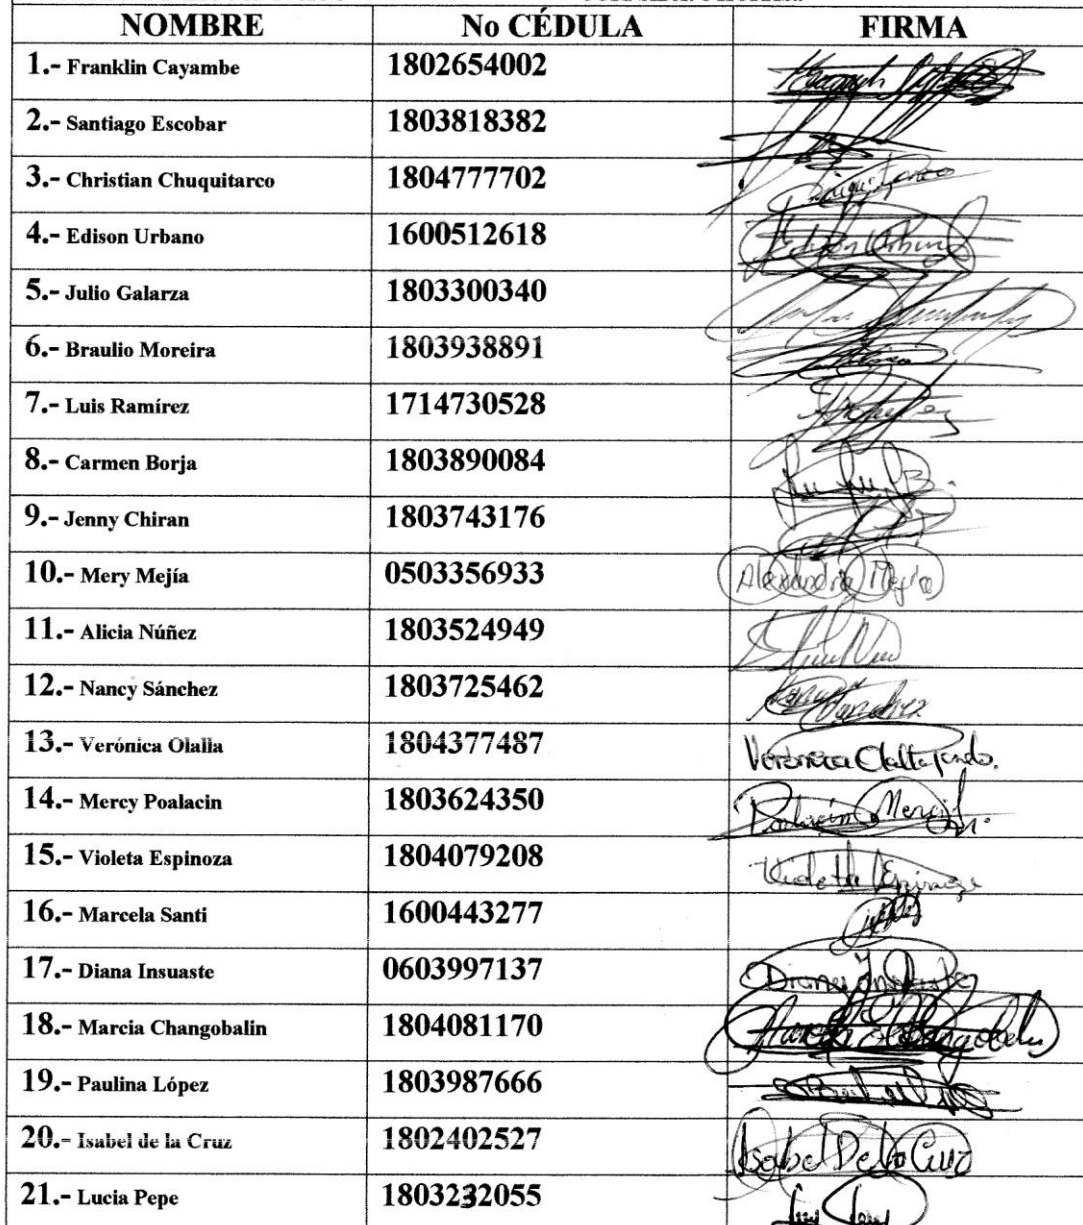 NOMBRE No CÉDULA FIRMA
1.- Franklin Cayambe 1802654002
2.- Santiago Escobar 1803818382
3.- Christian Chuquitarco 1804777702
4.- Edison Urbano 1600512618 Edison Urbano
5.- Julio Galarza 1803300340
6.- Braulio Moreira 1803938891
7.- Luis Ramírez 1714730528
8.- Carmen Borja 1803890084
9.- Jenny Chiran 1803743176
10.- Mery Mejía 0503356933 Alexandra Mejía
11.- Alicia Núñez 1803524949
12.- Nancy Sánchez 1803725462 Nancy Sanchez
13.- Verónica Olalla 1804377487 Verónica
14.- Mercy Poalacin 1803624350 Poalacín Mercy
15.- Violeta Espinoza 1804079208 Violeta Espinoza
16.- Marcela Santi 1600443277
17.- Diana Insuaste 0603997137 Diana Insuaste
18.- Marcia Changobalin 1804081170
19.- Paulina López 1803987666
20.- Isabel de la Cruz 1802402527 Isabel De la Cruz
21.- Lucia Pepe 1803232055